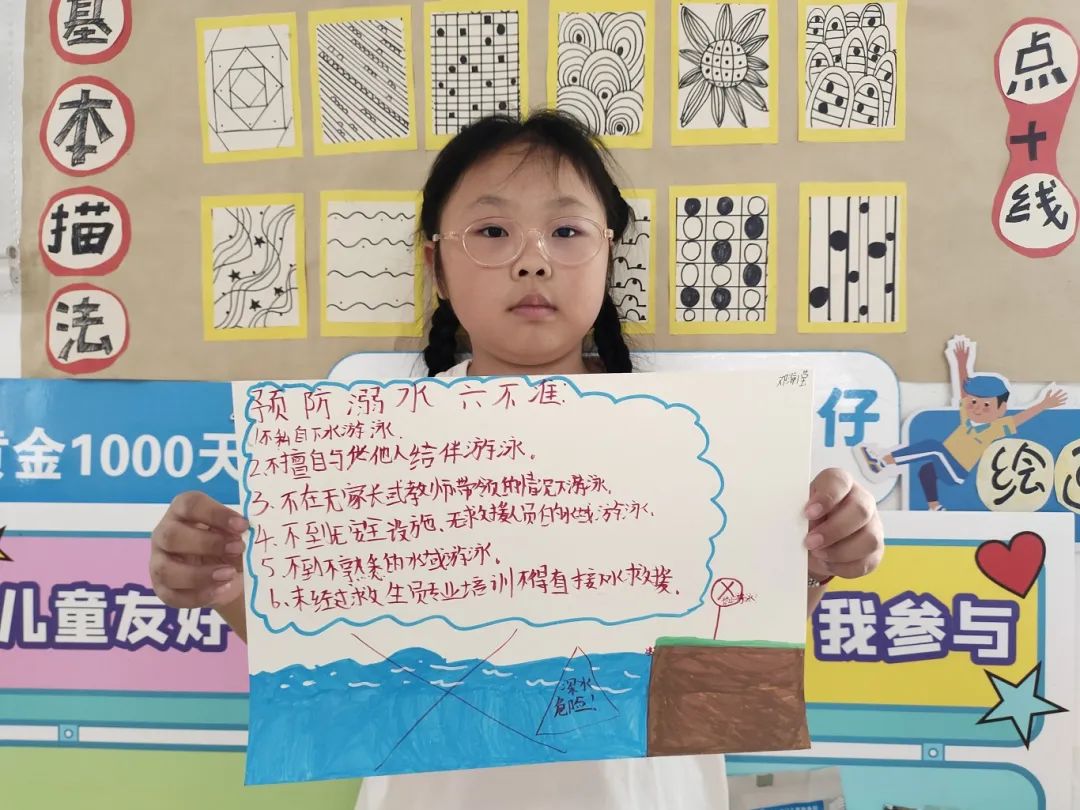 基本描法
点+线
预防溺水 六不准:
1.不私自下水游泳.
2.不擅自与他人结伴游泳。
3.不在无家长或教师带领的情况下游泳.
4.不到无安全设施、无救援人员的水域游泳.
5.不到不熟悉的水域游泳。
6.未经过救生员专业培训不得直接下水救援.
深水
危险!
仔
黄金1000天
绘
儿童友好
我参与